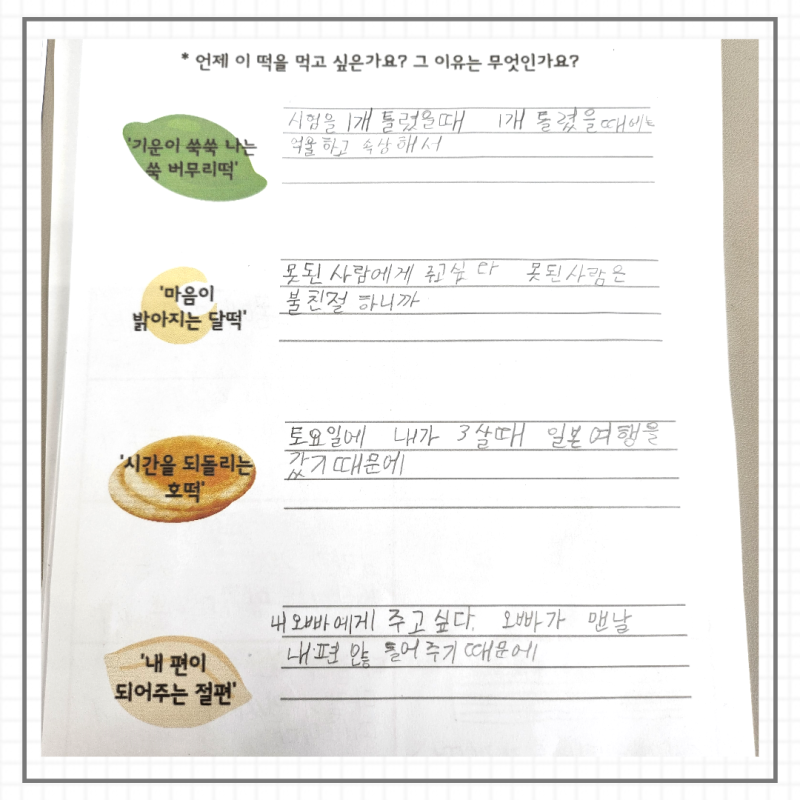 * 언제 이 떡을 먹고 싶은가요? 그 이유는 무엇인가요?
'기운이 쑥쑥 나는
쑥 버무리떡'
시험을 1개 틀렸을때 1개 틀렸을때에는
억울하고 속상해서
'마음이
밝아지는 달떡'
못된 사람에게 주고싶다 못된사람은
불친절 하니까
'시간을 되돌리는
호떡'
토요일에 내가 3살때 일본여행을
갔기때문에
'내 편이
되어주는 절편'
내오빠에게 주고싶다. 오빠가 맨날
내편 않 들어주기때문에